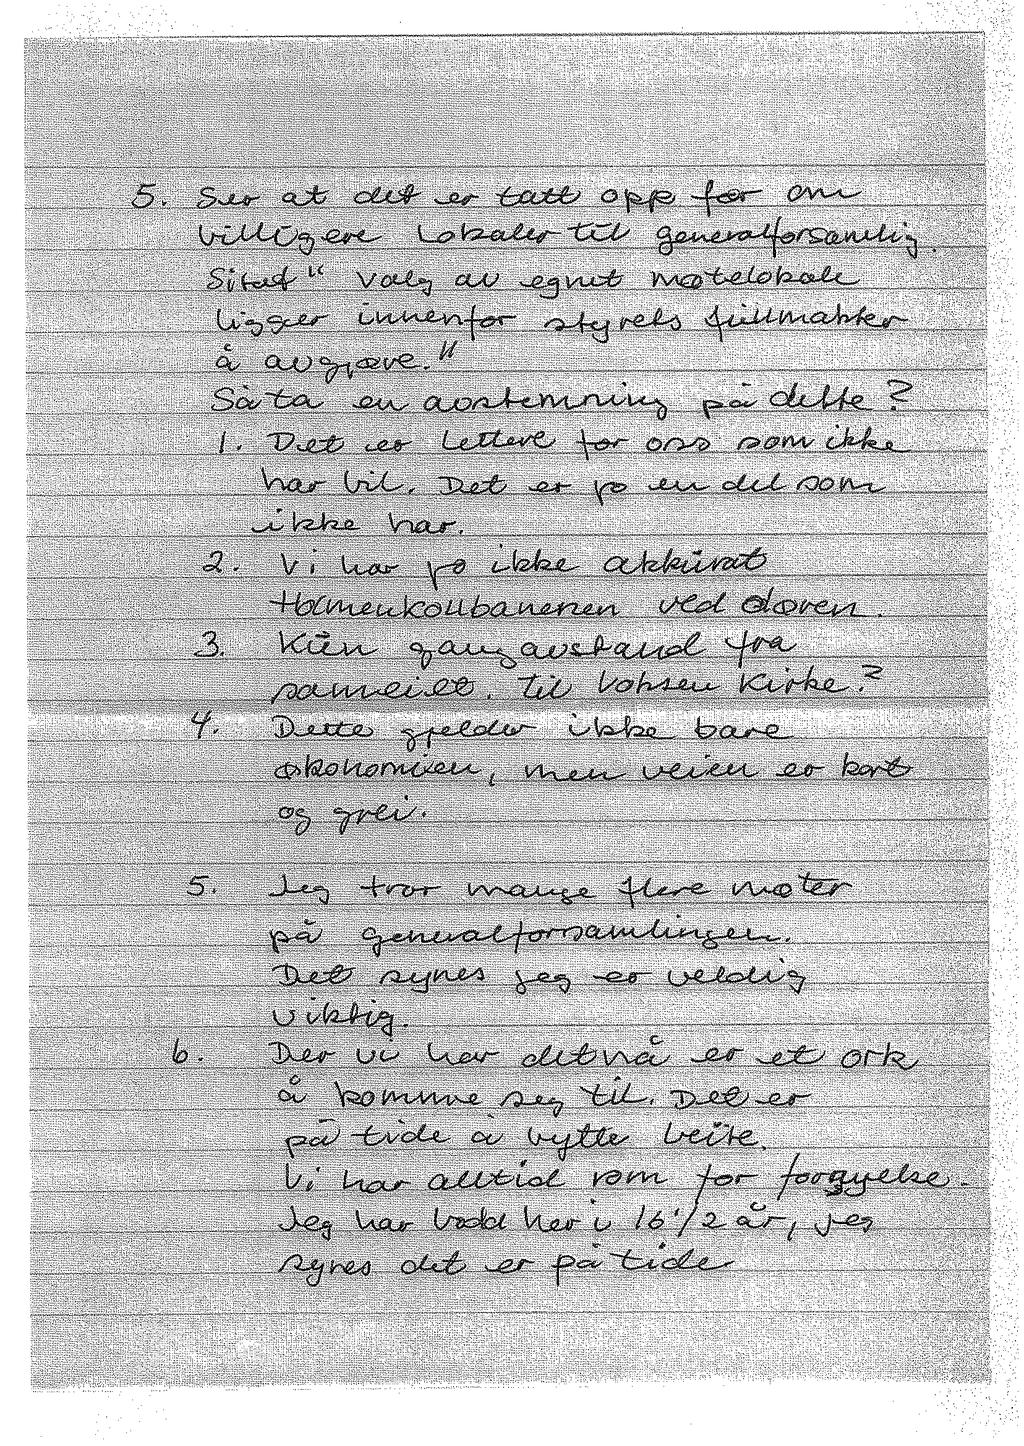 5. Ser at det er tatt opp før om
billigere lokaler til generalforsamlig.
Sitat " Valg av egnet møtelokale
ligger innenfor styrets fullmakter
å avgjøre."
Så ta en avstemning på dette?
1. Det er lettere for oss som ikke
har bil. Det er jo en del som
ikke har.
2. Vi har jo ikke akkurat
Holmenkollbanenen ved døren.
3. Kun gangavstand fra
sameiet. til Vohsen Kirke?
4. Dette gjelder ikke bare
økonomien, men veien er kort
og grei.
5. Jeg tror mange flere møter
på generalforsamlingen.
Det synes jeg er veldig
viktig.
6. Der vi har det nå er et ork
å komme seg til. Det er
på tide å bytte beite.
Vi har alltid rom for forgyelse.
Jeg har bodd her i 16 1/2 år, jeg
synes det er på tide